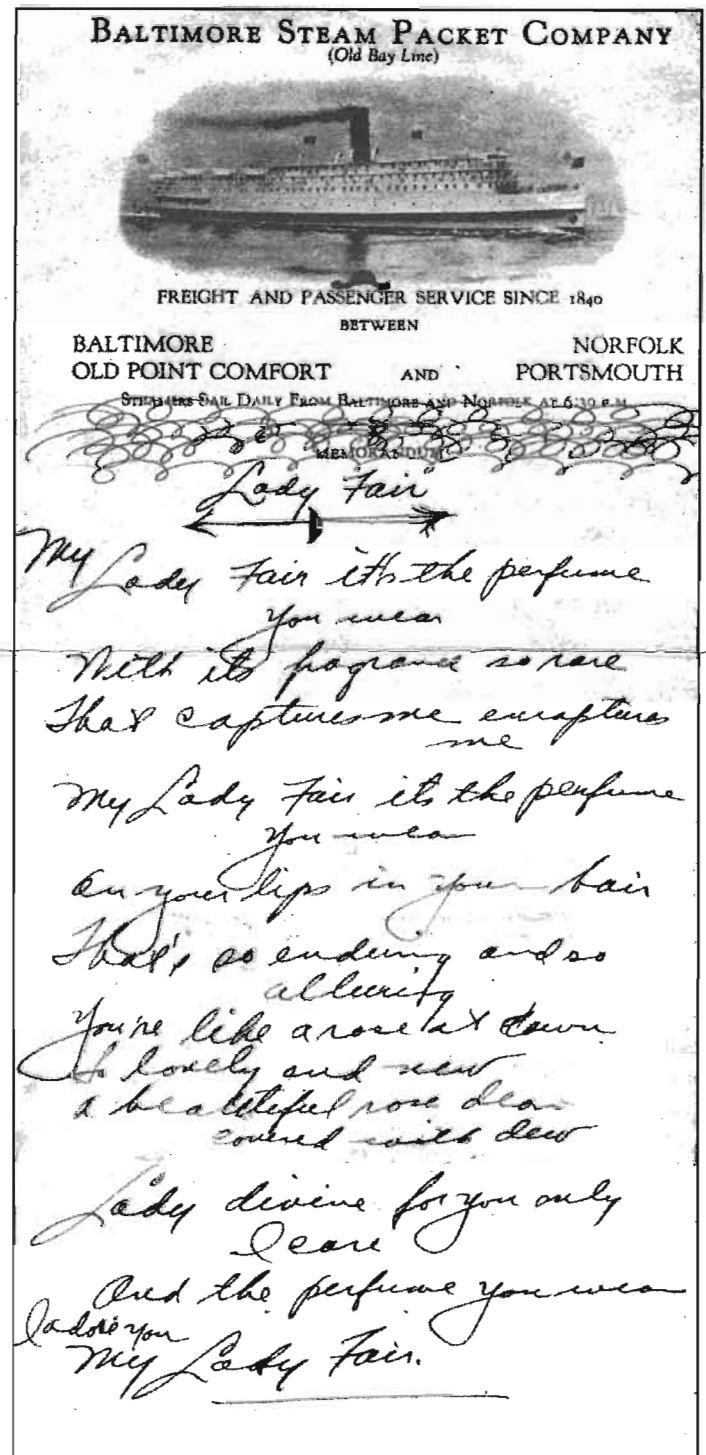 BALTIMORE STEAM PACKET COMPANY
(Old Bay Line)
FREIGHT AND PASSENGER SERVICE SINCE 1840
BETWEEN
BALTIMORE NORFOLK
OLD POINT COMFORT AND PORTSMOUTH
STEAMERS SAIL DAILY FROM BALTIMORE AND NORFOLK AT 6:30 P.M.
MEMORANDUM
Lady Fair
My Lady Fair it's the perfume
you wear
With its fragrance so rare
That captures me enraptures
me
My Lady Fair its the perfume
you wear
On your lips in your hair
That's so enduring and so
alluring
You're like a rose at dawn
So lovely and new
A beautiful rose dear
covered with dew
Lady divine for you only
I care
And the perfume you wear
I adore you
My Lady Fair.